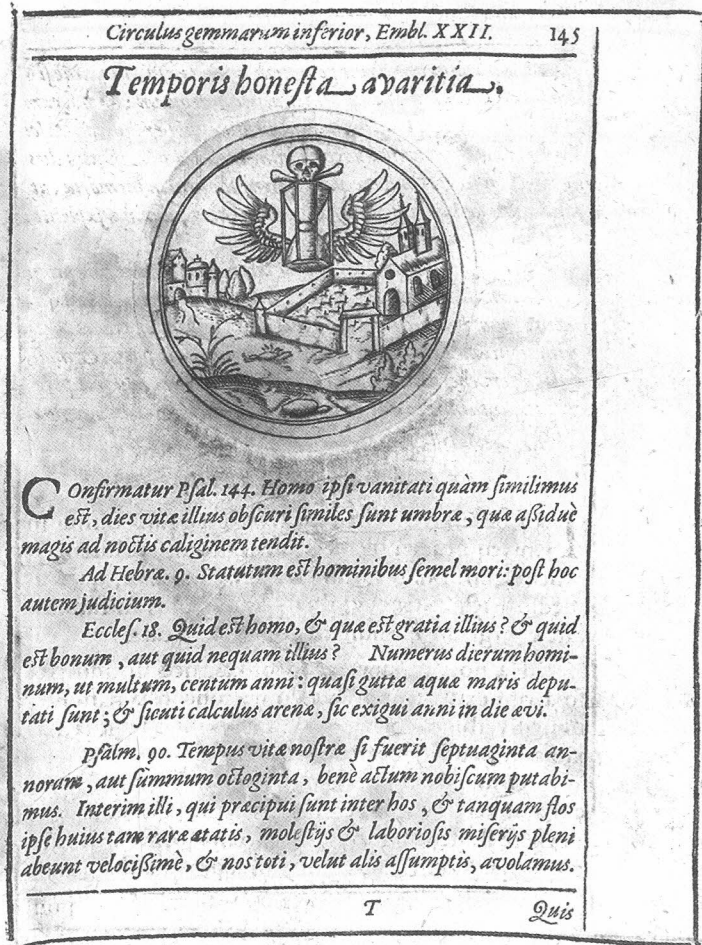 Circulus gemmarum inferior, Embl. XXII. 145
Temporis honesta avaritia.
COnfirmatur Psal. 144. Homo ipsi vanitati quàm similimus
est, dies vitæ illius obscuri similes sunt umbræ, quæ aßiduè
magis ad noctis caliginem tendit.
Ad Hebræ. 9. Statutum est hominibus semel mori: post hoc
autem judicium.
Eccles. 18. Quid est homo, & quæ est gratia illius? & quid
est bonum, aut quid nequam illius? Numerus dierum homi-
num, ut multum, centum anni: quasi guttæ aquæ maris depu-
tati sunt; & sicuti calculus arenæ, sic exigui anni in die ævi.
Psalm. 90. Tempus vitæ nostræ si fuerit septuaginta an-
norum, aut sùmmum octoginta, benè actum nobiscum putabi-
mus. Interim illi, qui præcipui sunt inter hos, & tanquam flos
ipse huius tam raræ ætatis, molestijs & laboriosis miserijs pleni
abeunt velocißimè, & nos toti, velut alis assumptis, avolamus.
T Quis